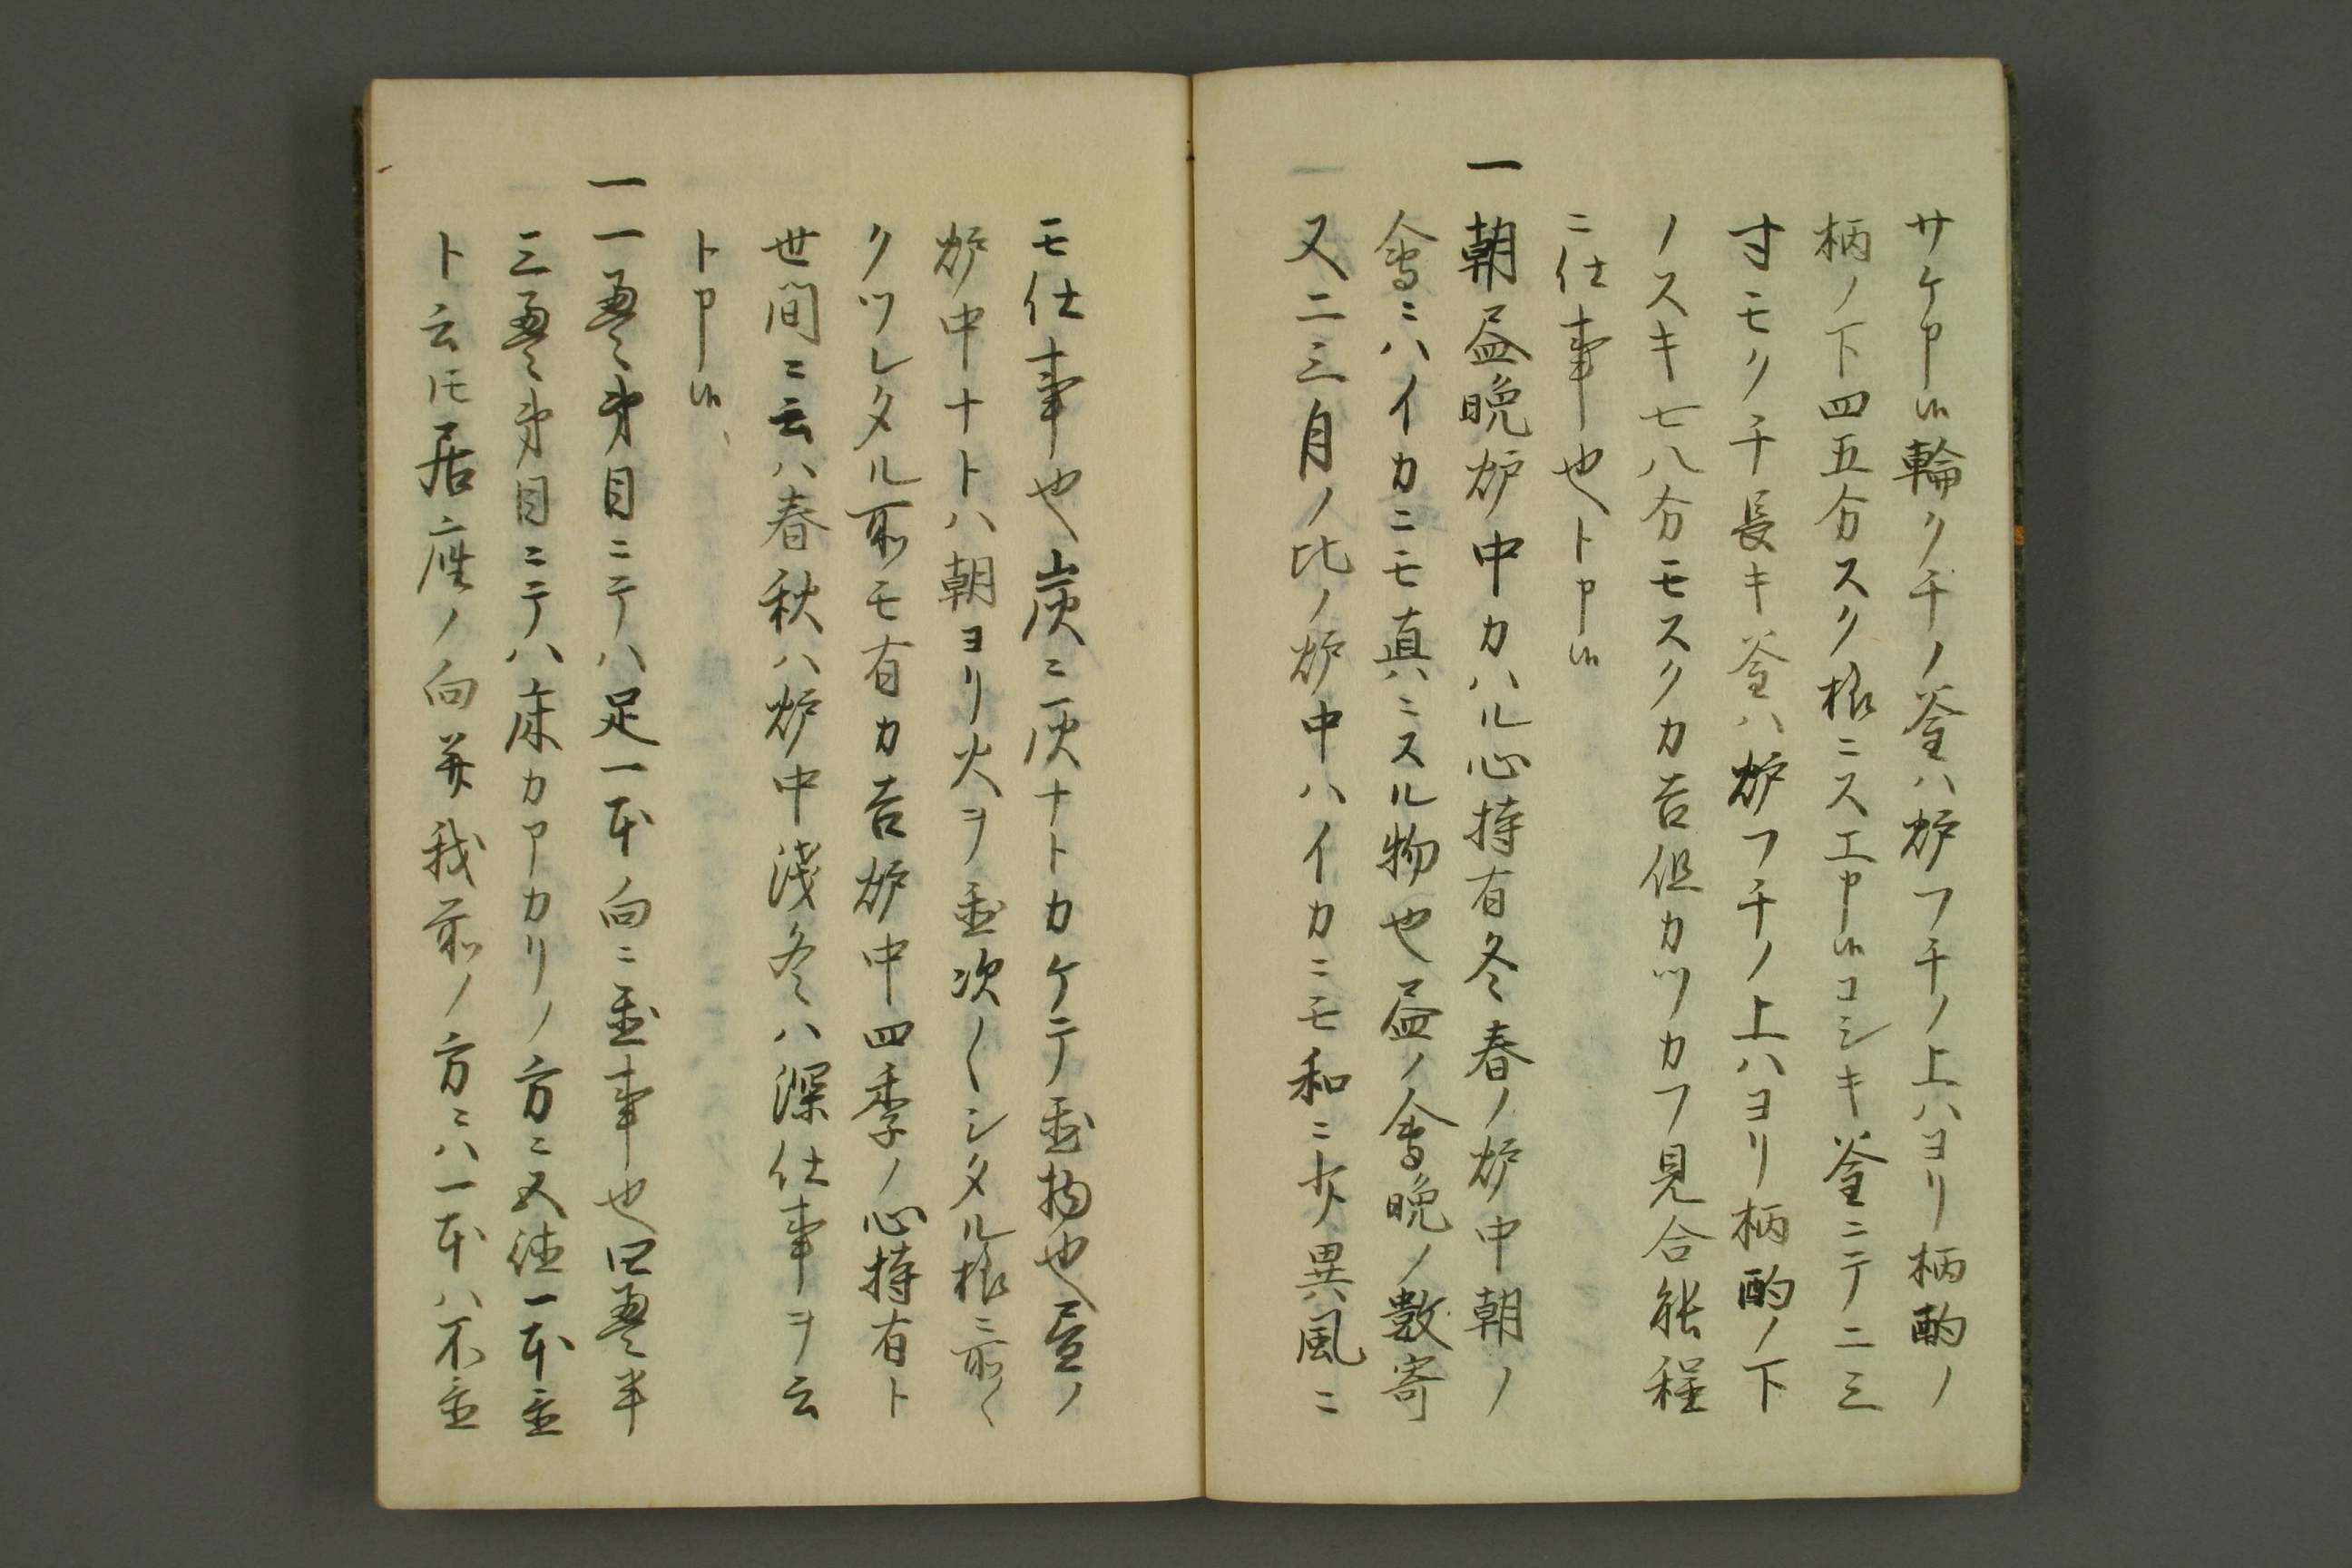 サケ申候輪クチノ釜ハ炉フチノ上ハヨリ柄酌ノ
柄ノ下四五分スク様ニスエ申候コシキ釜ニテ二三
寸モクチ長キ釜ハ炉フチノ上ハヨリ柄酌ノ下
ノスキ七八分モスクカ吉但カツカフ見合能程
ニ仕事也ト申候
一朝昼晩炉中カハル心持有冬春ノ炉中朝ノ
會ニハイカニモ真ニスル物也昼ノ會晩ノ数寄
又二三月ノ比ノ炉中ハイカニモ和ニ少異風ニ
モ仕事也炭ニ灰ナトカケテ置物也昼ノ
炉中ナトハ朝ヨリ火ヲ置次〱シタル様ニ前〱
クツレタル所モ有カ吉炉中四季ノ心持有ト
世間ニ云ハ春秋ハ炉中浅冬ハ深仕事ヲ云
ト申候
一一畳半目ニテハ足一本向ニ置事也四畳半
三畳半目ニテハ床カアカリノ方ニ五徳一本置
ト云𪜈居座ノ向并我前ノ方ニハ一本ハ不置